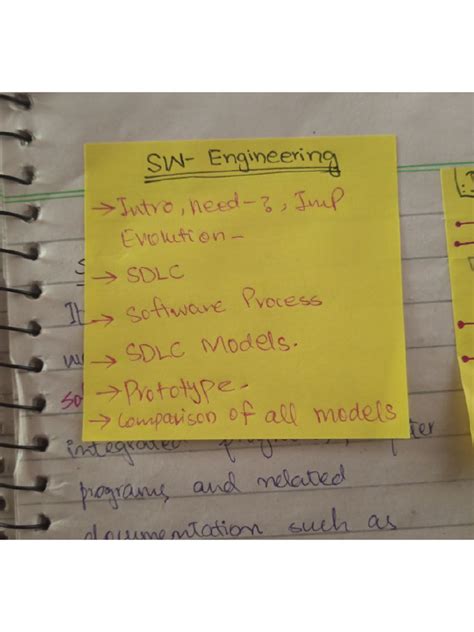 SW- Engineering
→ Intro, need-?, Imp
Evolution-
→ SDLC
→ Software Process
→ SDLC Models.
→ Prototype.
→ Comparison of all models
integrated
programs and related
documentation such as